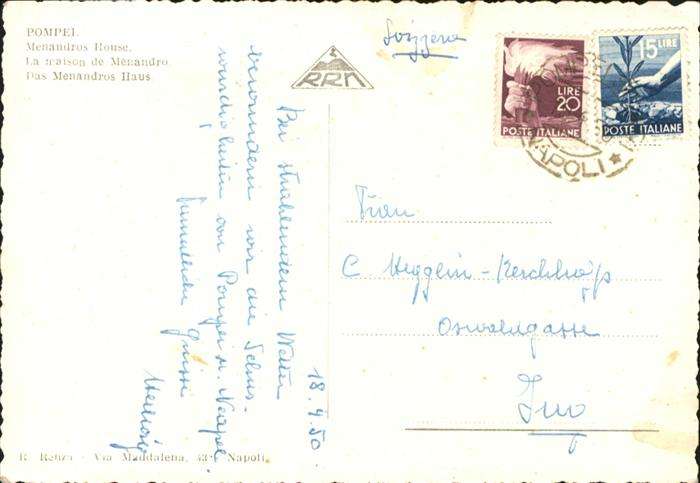 POMPEI.
Menandros House.
La maison de Ménandro.
Das Menandros Haus
RRN
Svizzera
LIRE
20
POSTE ITALIANE
15 LIRE
POSTE ITALIANE
NAPOLI
18.4.50
Bei strahlendem Wetter
bewundern wir die Sehens-
würdigkeiten von Pompei u. Neapel
Grüsse
Frau
C Hegglin-
Oswaldgasse
Zug
R. Renza - Via Maddalena, Napoli